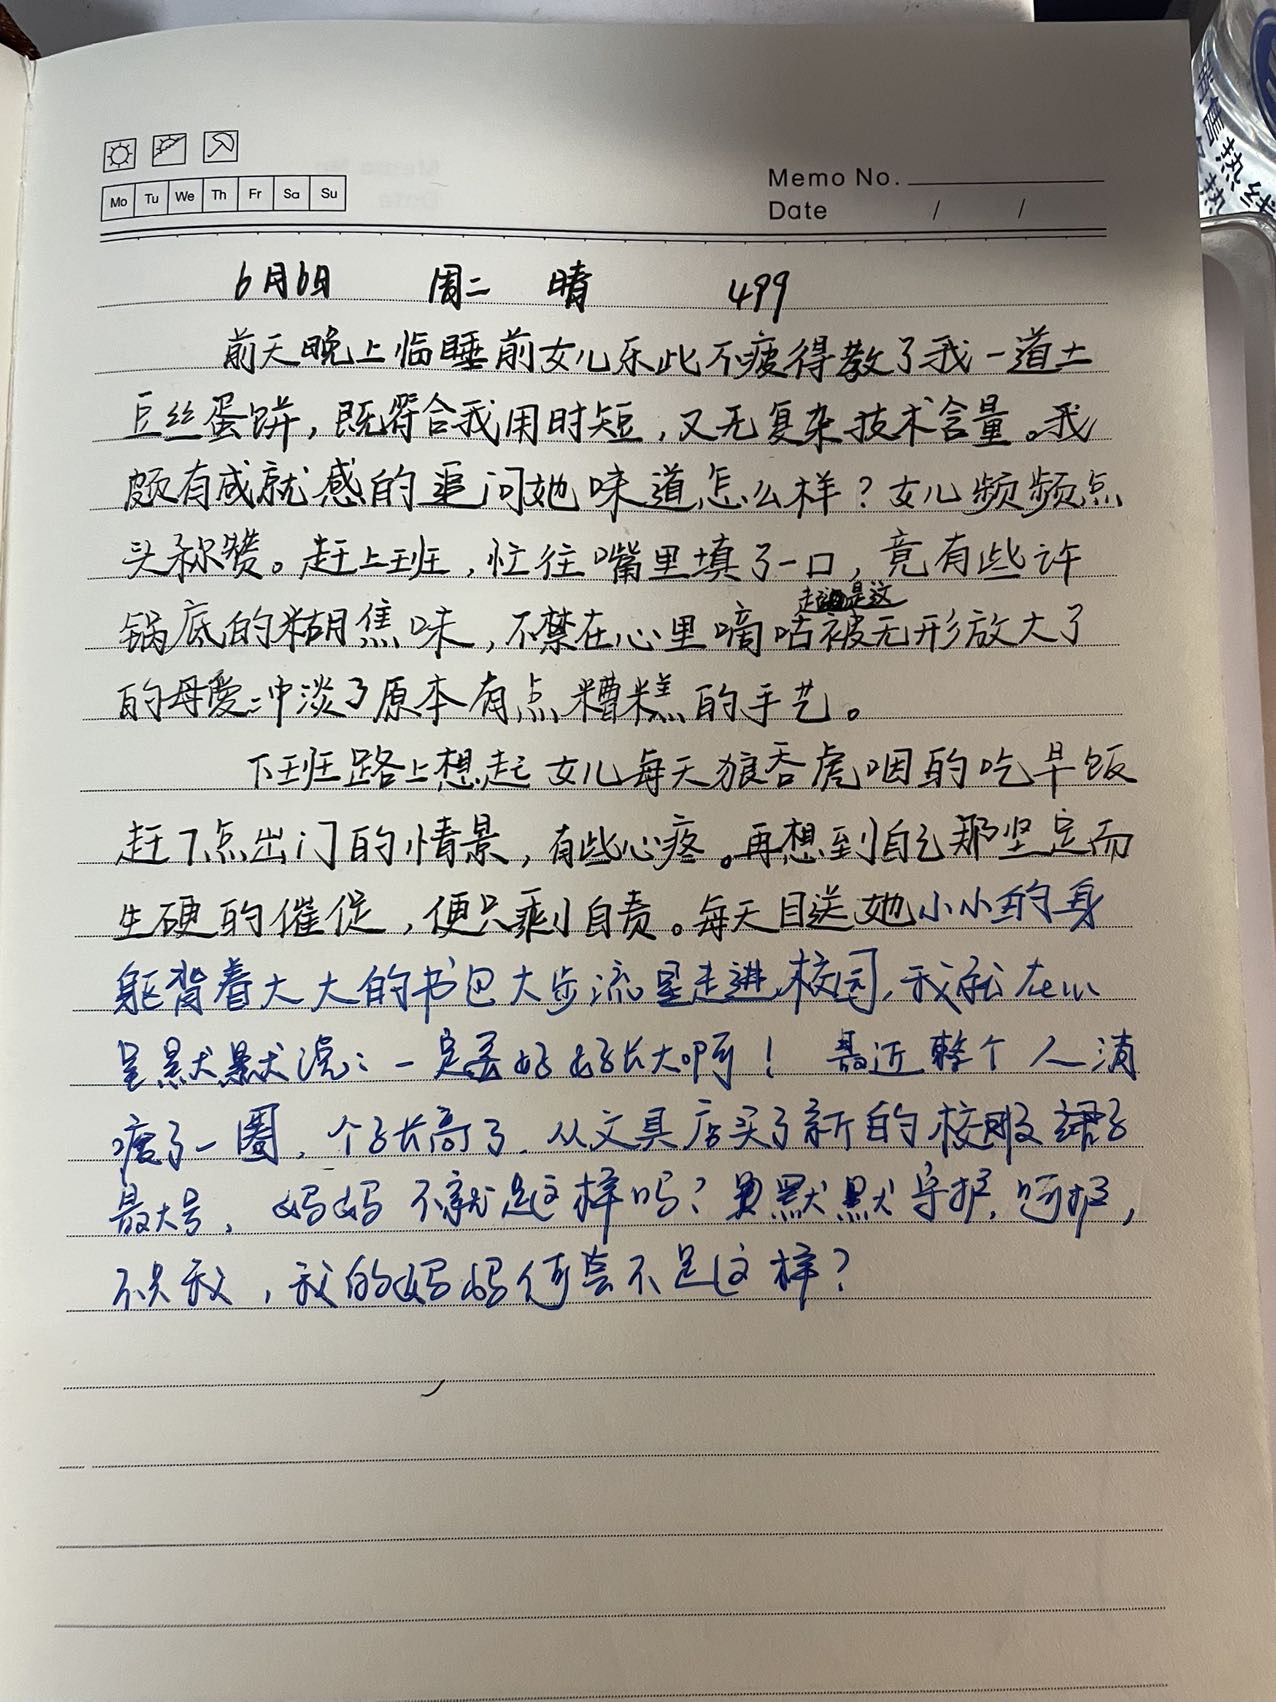 Mo Tu We Th Fr Sa Su
Memo No.
Date / /
6月6日 周二 晴 499
前天晚上临睡前女儿乐此不疲得教了我一道土
豆丝蛋饼，既符合我用时短，又无复杂技术含量。我
颇有成就感的追问她味道怎么样？女儿频频点
头称赞。赶上班，忙往嘴里填了一口，竟有些许
是这
锅底的糊焦味，不禁在心里嘀咕被无形放大了
的母爱冲淡了原本有点糟糕的手艺。
下班路上想起女儿每天狼吞虎咽的吃早饭
赶7点出门的情景，有些心疼。再想到自己那坚定而
生硬的催促，便只剩自责。每天目送她小小的身
躯背着大大的书包大步流星走进校园，我就在心
里默默说：一定要好好长大啊！最近整个人消
瘦了一圈，个子长高了，从文具店买了新的校服裙子
最大号，妈妈不就是这样吗？默默守护，呵护，
不只我，我的妈妈何尝不是这样？
销售热线
热